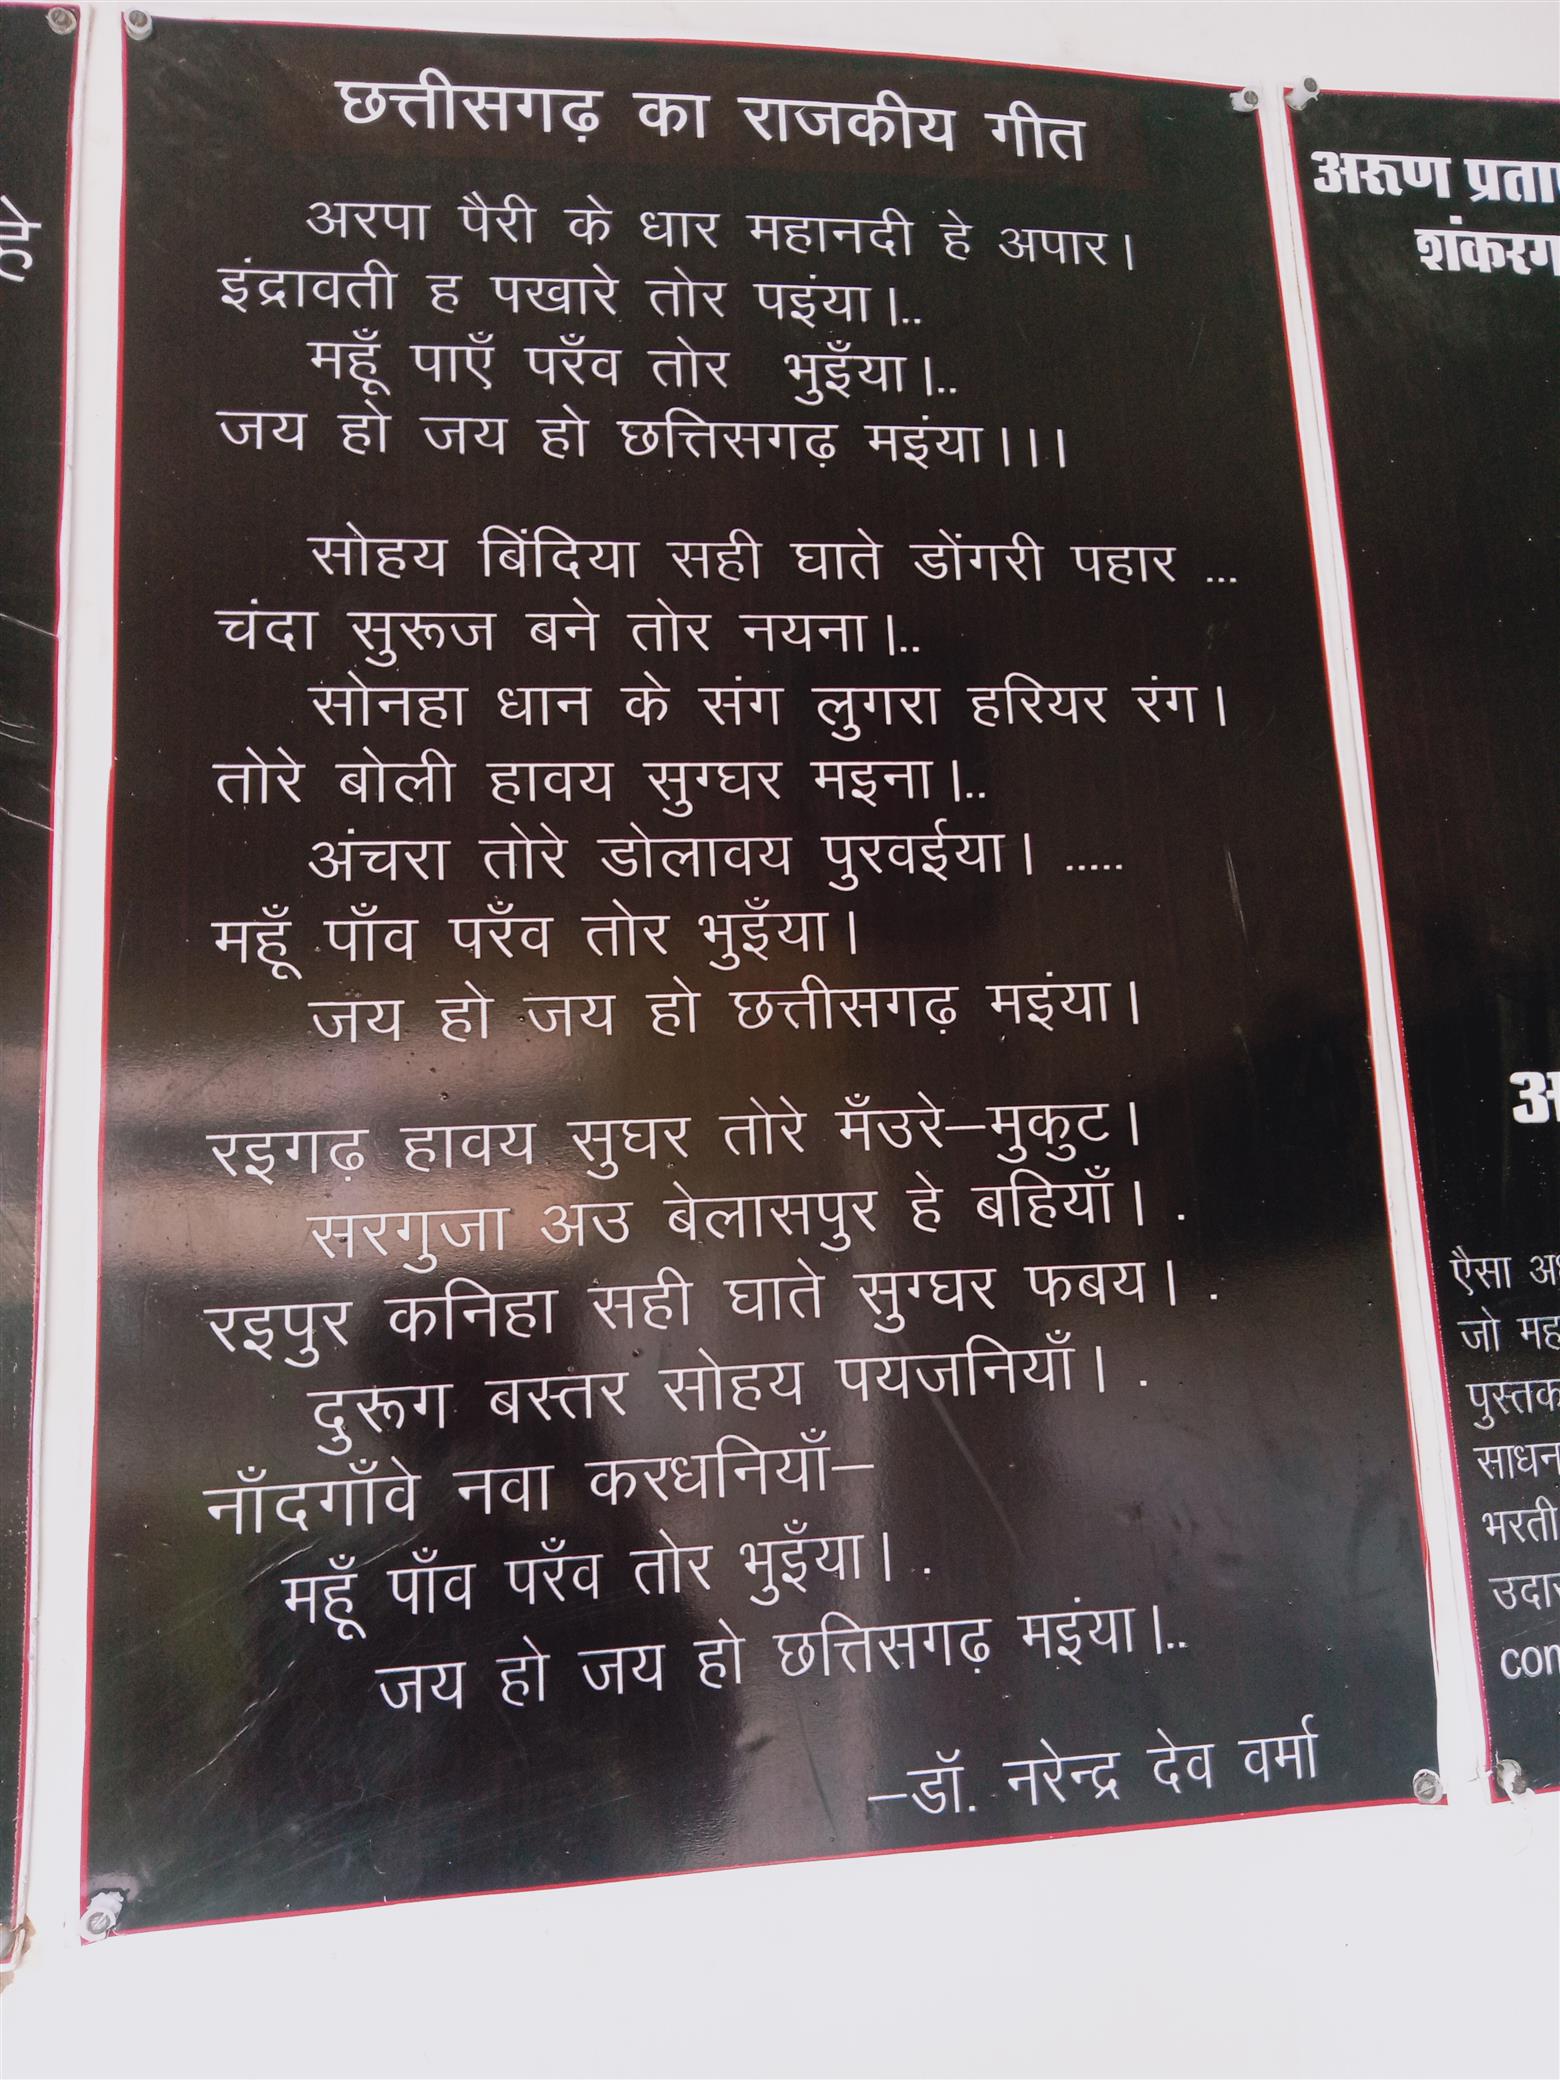 छत्तीसगढ़ का राजकीय गीत
अरपा पैरी के धार महानदी हे अपार।
इंद्रावती ह पखारे तोर पइंया।..
महूँ पाएँ परँव तोर भुइँया।..
जय हो जय हो छत्तिसगढ़ मइंया।।।
सोहय बिंदिया सही घाते डोंगरी पहार ...
चंदा सुरूज बने तोर नयना।..
सोनहा धान के संग लुगरा हरियर रंग।
तोरे बोली हावय सुग्घर मइना।..
अंचरा तोरे डोलावय पुरवईया। .....
महूँ पाँव परँव तोर भुइँया।
जय हो जय हो छत्तीसगढ़ मइंया।
रइगढ़ हावय सुघर तोरे मँउरे–मुकुट।
सरगुजा अउ बेलासपुर हे बहियाँ। .
रइपुर कनिहा सही घाते सुग्घर फबय। .
दुरूग बस्तर सोहय पयजनियाँ। .
नाँदगाँवे नवा करधनियाँ–
महूँ पाँव परँव तोर भुइँया। .
जय हो जय हो छत्तिसगढ़ मइंया।..
–डॉ. नरेन्द्र देव वर्मा
हे
अरूण
ऐसा
जो
साधन
भरती